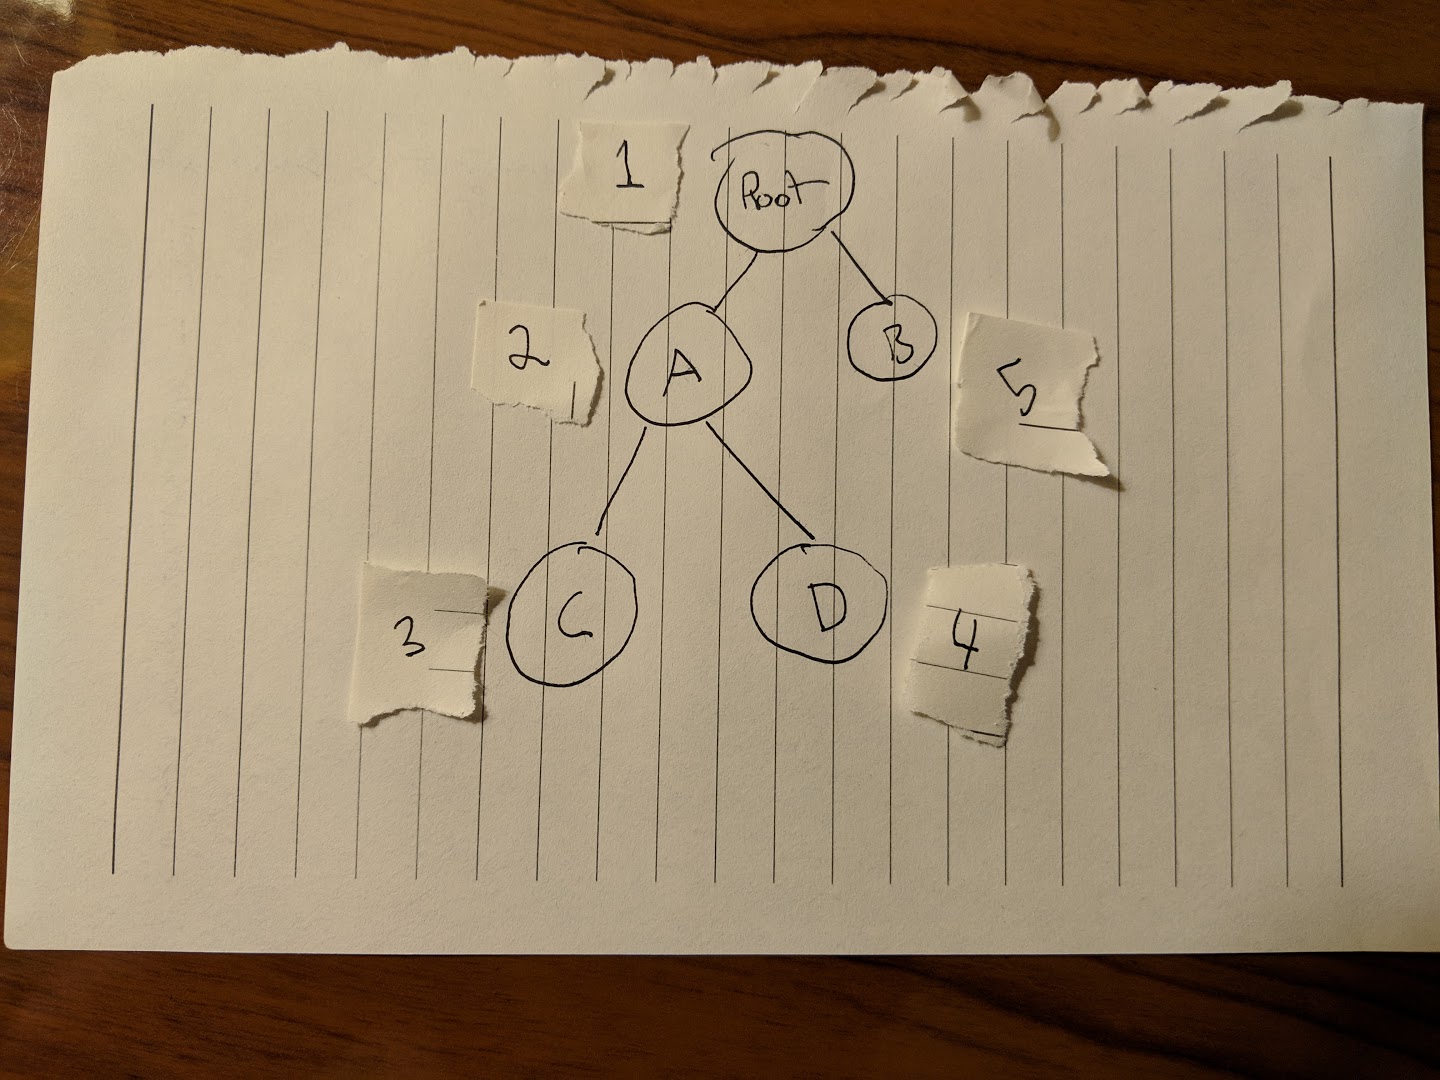 1
Root
2
A
B
5
3
C
D
4